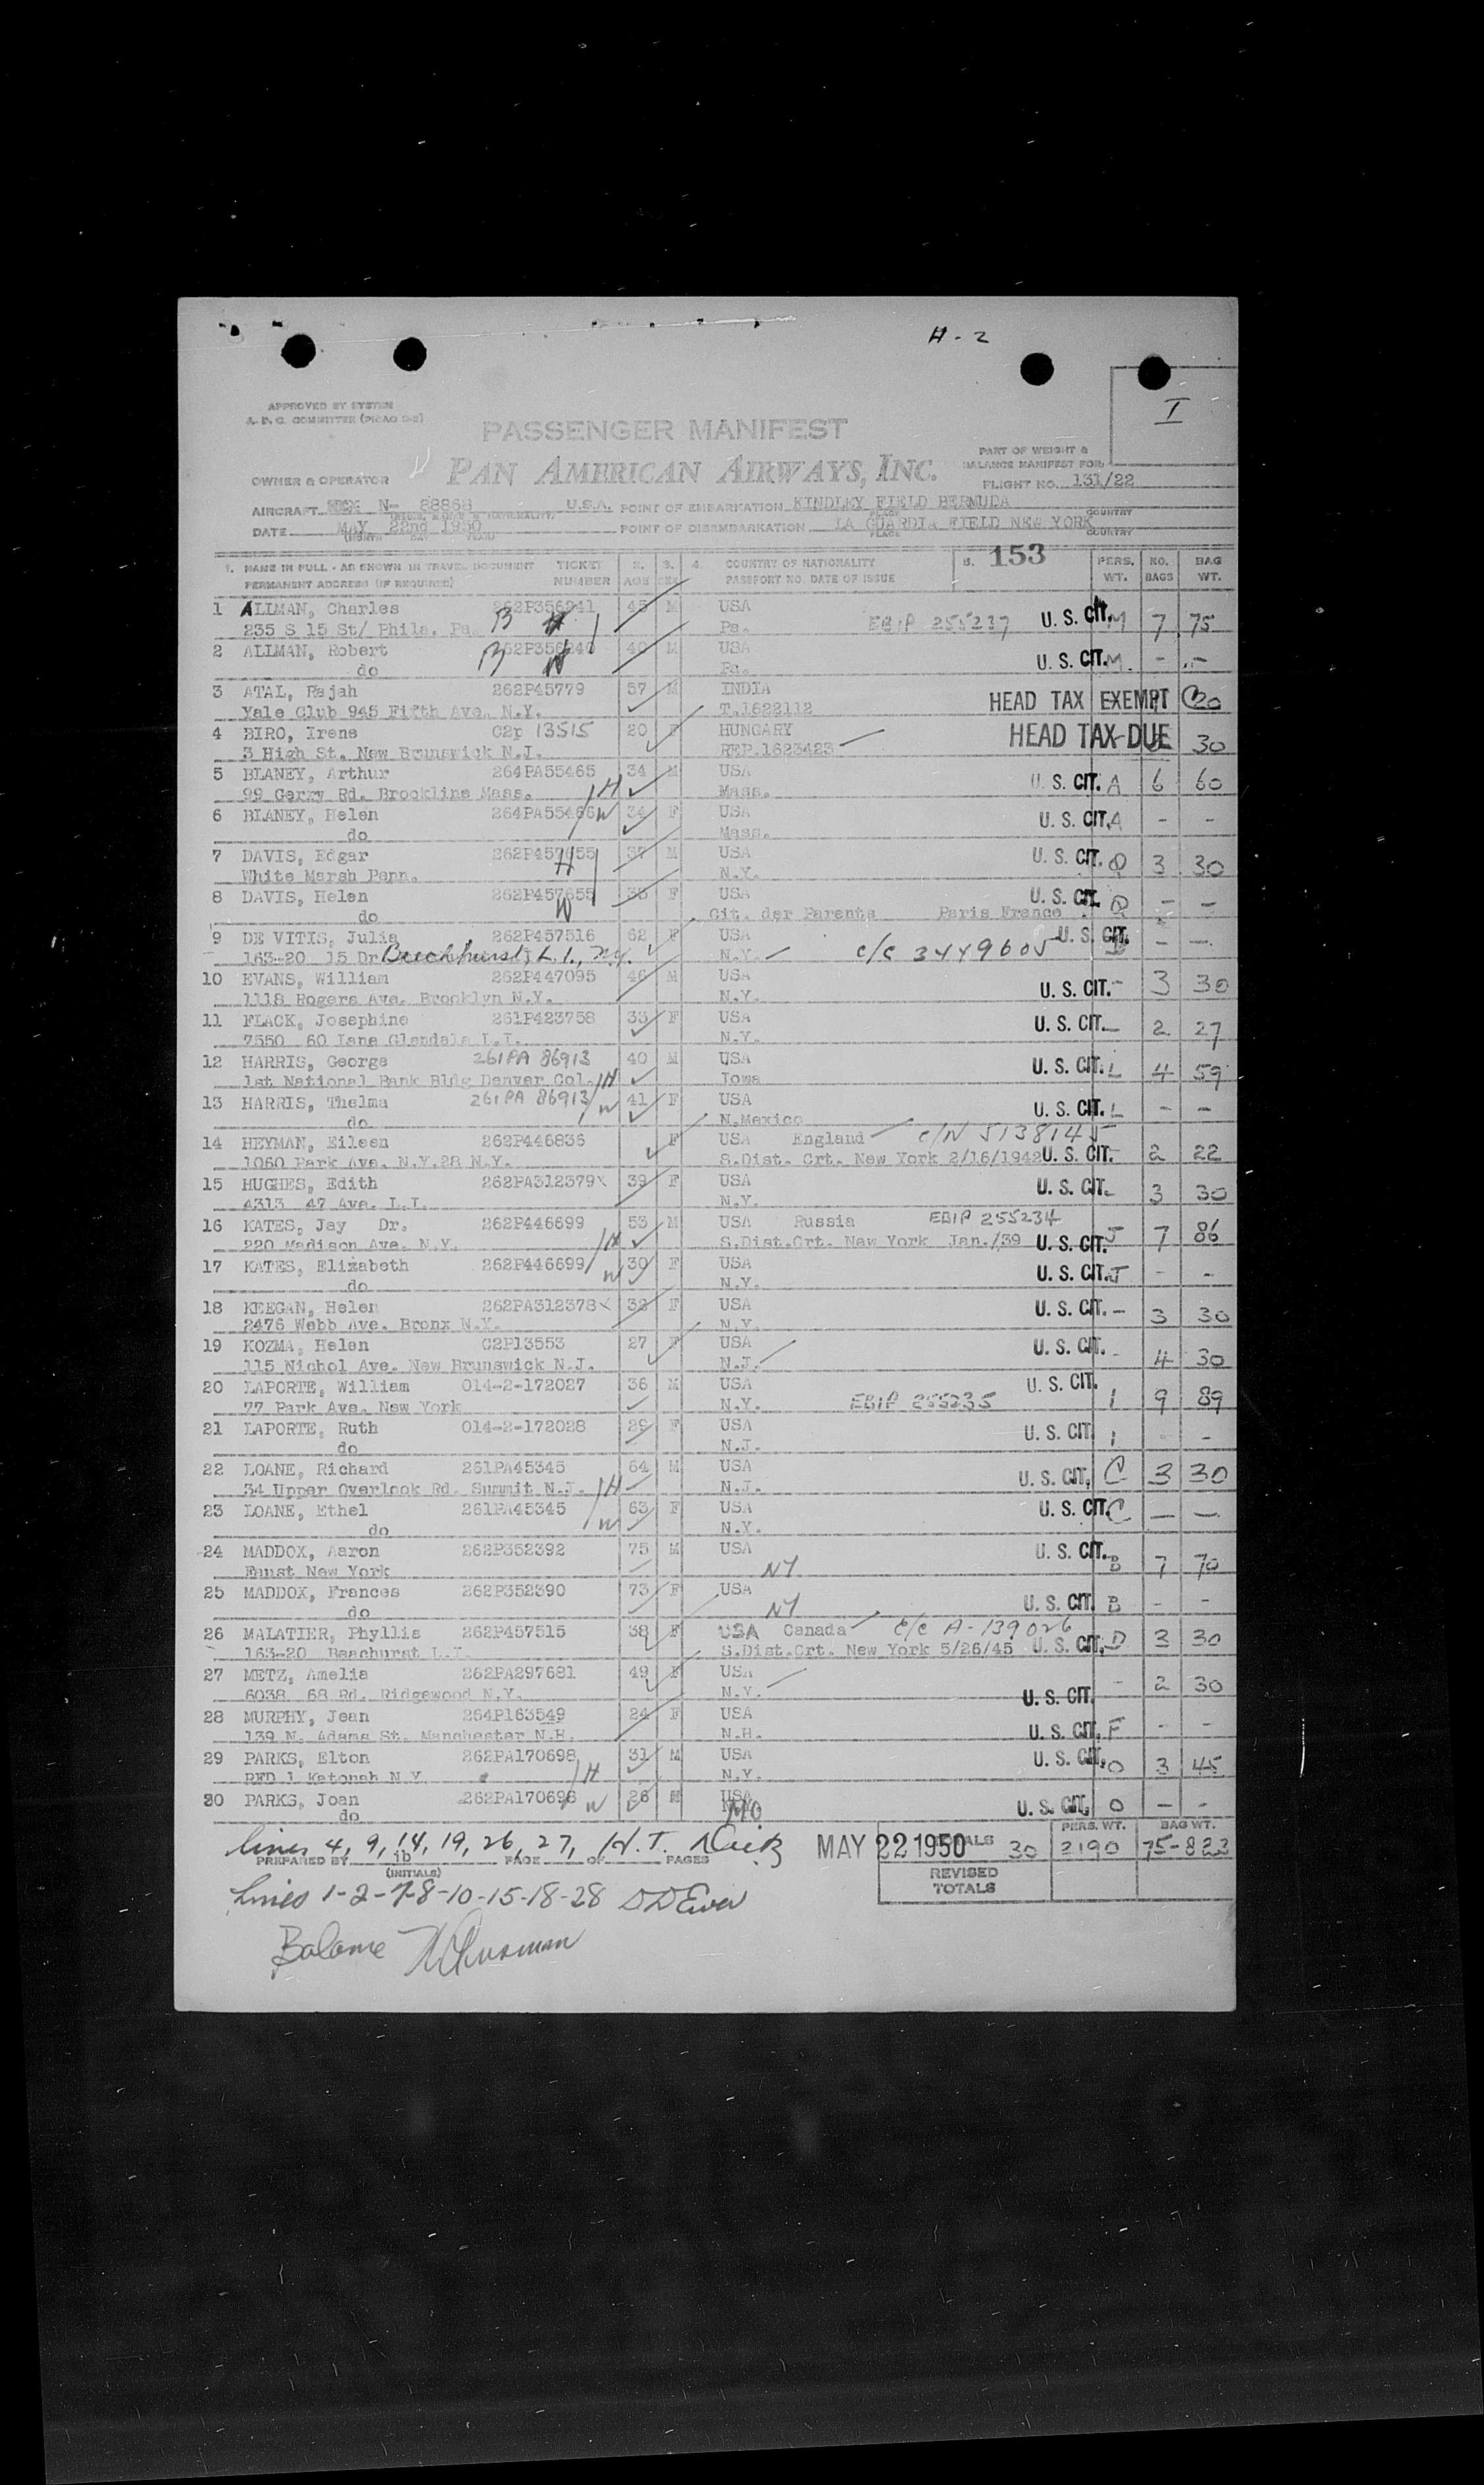 H - 2
APPROVED BY SYSTEM
A. D. C. COMMITTEE (PICAO D-2)
I
PASSENGER MANIFEST
PART OF WEIGHT &
BALANCE MANIFEST FOR:
PAN AMERICAN AIRWAYS, INC.
OWNER & OPERATOR
FLIGHT NO. 131/22
AIRCRAFT N- 88868 U.S.A. POINT OF EMBARKATION KINDLEY FIELD BERMUDA
PLACE COUNTRY
DATE MAY 22nd 1950 POINT OF DISEMBARKATION LA GUARDIA FIELD NEW YORK
(MONTH DAY YEAR) PLACE COUNTRY
1. NAME IN FULL - AS SHOWN IN TRAVEL DOCUMENT TICKET 2. 3. 4. COUNTRY OF NATIONALITY 5. 153 PERS. NO. BAG
PERMANENT ADDRESS (IF REQUIRED) NUMBER AGE SEX PASSPORT NO. DATE OF ISSUE WT. BAGS WT.
1 ALLMAN, Charles 262P356241 45 M USA
235 S 15 St/ Phila. Pa. B Pa. EBIP 255237 U. S. CIT. M 7 75
2 ALLMAN, Robert 262P356240 40 M USA
do B Pa. U. S. CIT. M. - -
3 ATAL, Rajah 262P45779 57 M INDIA HEAD TAX EXEMPT 20
Yale Club 945 Fifth Ave. N.Y. T.1622112
4 BIRO, Irene C2p 13515 20 F HUNGARY HEAD TAX DUE 30
3 High St. New Brunswick N.J. REP.1623423
5 BLANEY, Arthur 264PA55465 34 M USA U. S. CIT. A 6 60
99 Gerry Rd. Brookline Mass. H Mass.
6 BLANEY, Helen 264PA55466 W 34 F USA U. S. CIT. A - -
do Mass.
7 DAVIS, Edgar 262P457655 37 M USA U. S. CIT. Q 3 30
White Marsh Penn. H N.Y.
8 DAVIS, Helen 262P457655 35 F USA U. S. CIT. Q - -
do W Cit. der Parents Paris France
9 DE VITIS, Julia 262P457516 62 F USA U. S. CIT. - -
163-20 15 Dr Beechhurst, L. I., N.Y. N.Y. c/c 3449605
10 EVANS, William 262P447095 46 M USA
1118 Rogers Ave. Brooklyn N.Y. N.Y. U. S. CIT. - 3 30
11 FLACK, Josephine 261P423758 33 F USA
7550 60 Lane Glendale L.I. N.Y. U. S. CIT. - 2 27
12 HARRIS, George 261PA 86913 40 M USA
1st National Bank Bldg Denver Col. H Iowa U. S. CIT. L 4 59
13 HARRIS, Thelma 261PA 86913 W 41 F USA
do N.Mexico U. S. CIT. L - -
14 HEYMAN, Eileen 262P446836 F USA England c/N 5138145
1060 Park Ave. N.Y.28 N.Y. S.Dist. Crt. New York 2/16/1942 U. S. CIT. - 2 22
15 HUGHES, Edith 262PA312379x 39 F USA
4313 47 Ave. L.I. N.Y. U. S. CIT. - 3 30
16 KATES, Jay Dr. 262P446699 53 M USA Russia EBIP 255234
220 Madison Ave. N.Y. H S.Dist.Crt. New York Jan./39 U. S. CIT. J 7 86
17 KATES, Elizabeth 262P446699 W 30 F USA
do N.Y. U. S. CIT. J - -
18 KEEGAN, Helen 262PA312378x 32 F USA
2476 Webb Ave. Bronx N.Y. N.Y. U. S. CIT. - 3 30
19 KOZMA, Helen C2P13553 27 F USA
115 Nichol Ave. New Brunswick N.J. N.J. U. S. CIT. - 4 30
20 LAPORTE, William 014-2-172027 36 M USA U. S. CIT.
77 Park Ave. New York N.Y. EBIP 255235 I 9 89
21 LAPORTE, Ruth 014-2-172028 29 F USA
do N.J. U. S. CIT. I - -
22 LOANE, Richard 261PA45345 64 M USA
34 Upper Overlook Rd. Summit N.J. H N.J. U. S. CIT. C 3 30
23 LOANE, Ethel 261PA45345 63 F USA U. S. CIT. C - -
do W N.Y.
24 MADDOX, Aaron 262P352392 75 M USA
Faust New York NY U. S. CIT. B 7 70
25 MADDOX, Frances 262P352390 73 F USA
do NY U. S. CIT. B - -
26 MALATIER, Phyllis 262P457515 38 F USA Canada c/c A-139026
163-20 Beachurst L.I. S.Dist.Crt. New York 5/26/45 U. S. CIT. D 3 30
27 METZ, Amelia 262PA297681 49 F USA
6038 68 Rd. Ridgewood N.Y. N.Y. U. S. CIT. - 2 30
28 MURPHY, Jean 264P163549 24 F USA
139 N. Adams St. Manchester N.H. N.H. U. S. CIT. F - -
29 PARKS, Elton 262PA170698 31 M USA
RFD 1 Katonah N.Y. H N.Y. U. S. CIT. O 3 45
30 PARKS, Joan 262PA170698 W 26 M USA
do MO U. S. CIT. O - -
PERS. WT. BAG WT.
lines 4, 9, 14, 19, 26, 27, H. T. MAY 22 1950 TOTALS 30 2190 75-823
PREPARED BY jb PAGE OF PAGES
(INITIALS)
REVISED
TOTALS
Lines 1-2-7-8-10-15-18-28
Balance